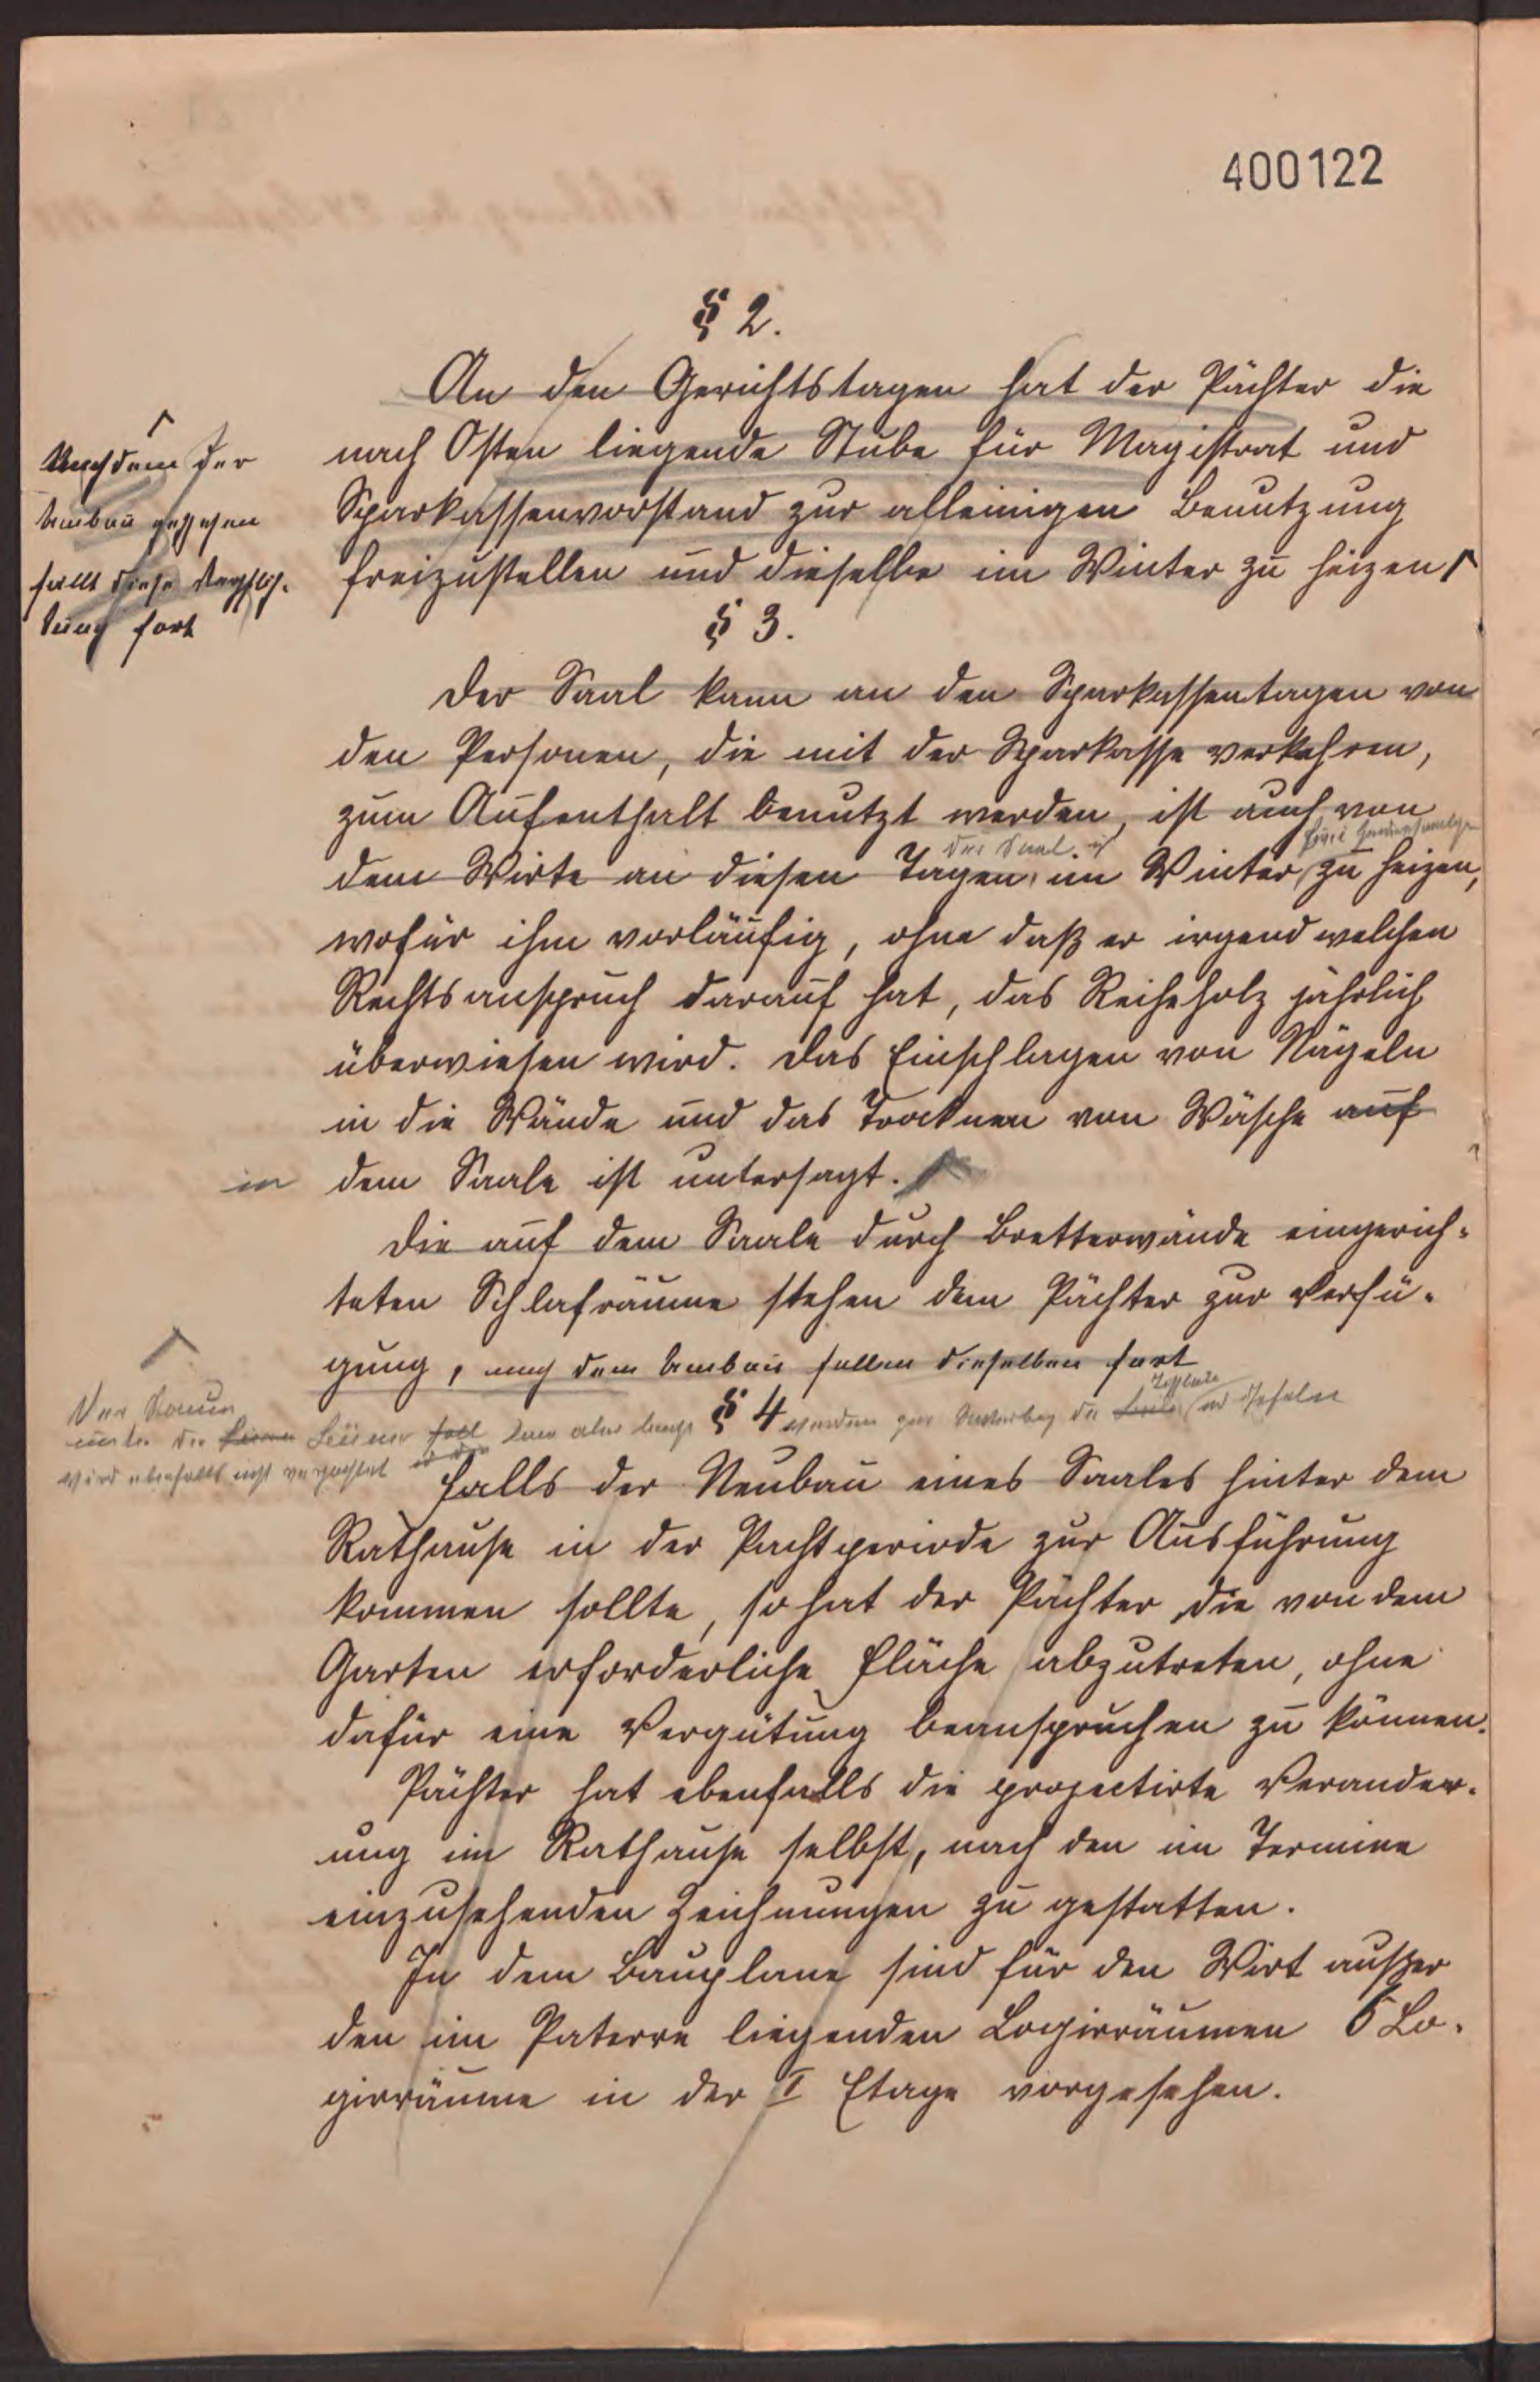 400122
§ 2.
An den Gerichtstagen hat der Pächter die
nach Osten liegende Stube für Magistrat und
Sparkassenvorstand zur alleinigen Benutzung
freizustellen und dieselbe im Winter zu heizen
Nachdem der
Umbau geschehen
fällt diese Verpflich-
tung fort
§ 3.
Der Saal kann an den Sparkassentagen von
den Personen, die mit der Sparkasse verkehren,
zum Aufenthalt benutzt werden, ist auch von
der Saal ist
dem Wirte an diesen Tagen im Winter zu heizen,
wofür ihm vorläufig, ohne daß er irgend welchen
Rechtsanspruch darauf hat, das Reiheholz jährlich
überwiesen wird. Das Einschlagen von Nägeln
in die Wände und das Trocknen von Wäsche auf
in dem Saale ist untersagt.
Die auf dem Saale durch Bretterwände eingerich-
teten Schlafräume stehen dem Pächter zur Verfü-
gung, nach dem Umbau fallen dieselben fort
Der Raum
unter der
wird ebenfalls nicht verpachtet
§ 4
Falls der Neubau eines Saales hinter dem
Rathause in der Pachtperiode zur Ausführung
kommen sollte, so hat der Pächter die von dem
Garten erforderliche Fläche abzutreten, ohne
dafür eine Vergütung beanspruchen zu können.
Pächter hat ebenfalls die projectirte Verander-
ung im Rathause selbst, nach den im Termine
einzusehenden Zeichnungen zu gestatten.
In dem Bauplane sind für den Wirt außer
den im Paterre liegenden Logirräumen 6 Lo-
girräume in der I Etage vorgesehen.